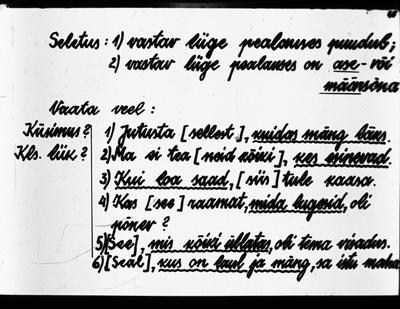 Seletus: 1) vastav liige pealauses puudub;
2) vastav liige pealauses on ase- või
määrsõna
Vaata veel:
Küsimus? 1) Jutusta [sellest], kuidas mäng läks.
Kls. liik? 2) Ma ei tea [neid kõiki], kes esinevad.
3) Kui loa saad, [siis] tule kaasa.
4) Kas [see] raamat, mida lugesid, oli
põnev?
5) [See], mis kõiki üllatas, oli tema viisadus.
6) [Seal], kus on laul ja mäng, sa istu maha